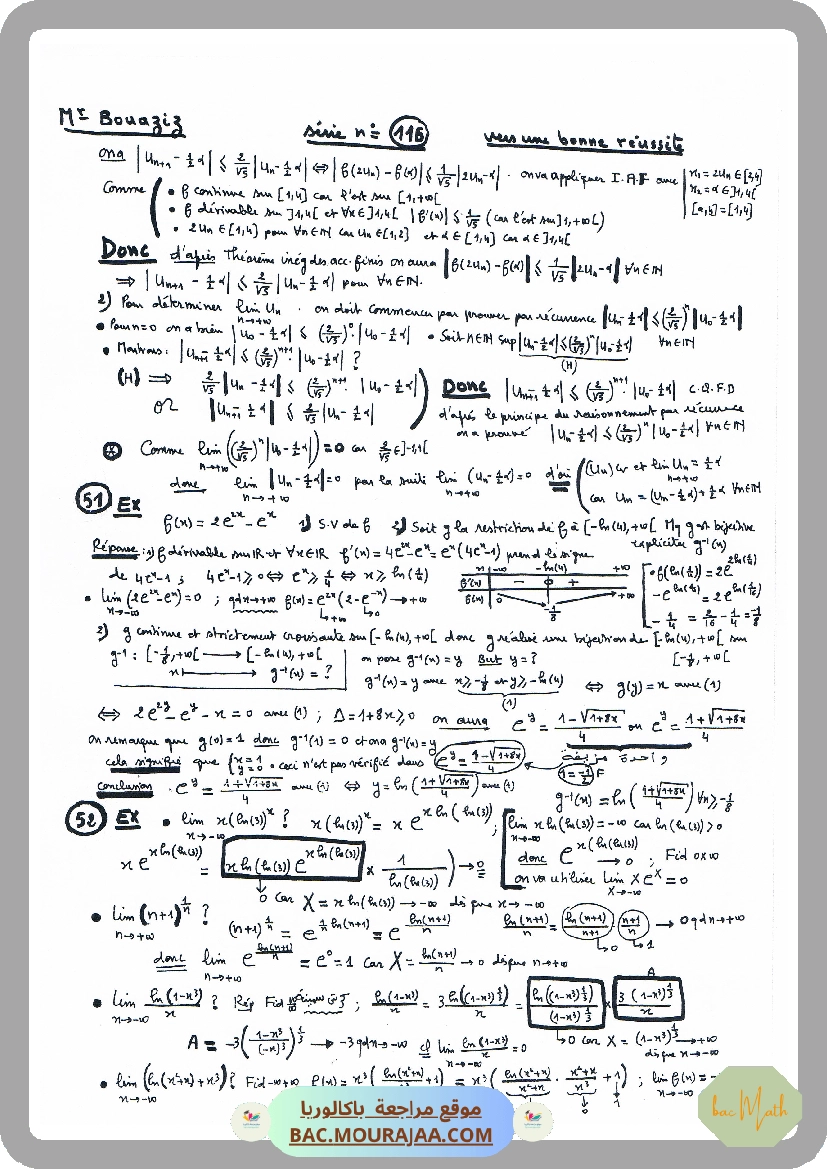 Mr Bouaziz série n° 116 vers une bonne réussite
ona |Un+1 - ½α| ≤ 2/√5 |Un - ½α| ⇔ |f(2Un) - f(α)| ≤ 1/√5 |2Un - α| . on va appliquer I.A.F avec | x₁ = 2Un ∈ [2,4]
x₂ = α ∈ ]1,4[
[a,b] = [1,4]
Comme • f continue sur [1,4] car l'est sur [1,+∞[
• f dérivable sur ]1,4[ et ∀x∈]1,4[ |f'(x)| ≤ 1/√5 (car l'est sur ]1,+∞[)
• 2Un ∈ [1,4] pour ∀n∈IN car Un ∈ [1,2] et α ∈ [1,4] car α ∈ ]1,4[
Donc d'après Théorème inég des acc. finis on aura |f(2Un) - f(α)| ≤ 1/√5 |2Un - α| ∀n∈IN
⇒ |Un+1 - ½α| ≤ 2/√5 |Un - ½α| pour ∀n∈IN.
2) Pour déterminer lim Un n→+∞ . on doit commencer par prouver par récurrence |Un - ½α| ≤ (2/√5)ⁿ |U₀ - ½α| ∀n∈IN
• Pour n=0 on a bien |U₀ - ½α| ≤ (2/√5)⁰ . |U₀ - ½α| • Soit n∈IN sup |Un - ½α| ≤ (2/√5)ⁿ |U₀ - ½α| (H)
• Montrons : |Un+1 - ½α| ≤ (2/√5)ⁿ⁺¹ . |U₀ - ½α| ?
(H) ⇒ 2/√5 |Un - ½α| ≤ (2/√5)ⁿ⁺¹ . |U₀ - ½α| Donc |Un+1 - ½α| ≤ (2/√5)ⁿ⁺¹ . |U₀ - ½α| C.Q.F.D
or |Un+1 - ½α| ≤ 2/√5 |Un - ½α| d'après le principe du raisonnement par récurrence
on a prouvé |Un - ½α| ≤ (2/√5)ⁿ |U₀ - ½α| ∀n∈IN
Comme lim n→+∞ ((2/√5)ⁿ |U₀ - ½α|) = 0 car 2/√5 ∈ ]-1,1[
donc lim n→+∞ |Un - ½α| = 0 par la suite lim n→+∞ (Un - ½α) = 0 d'où (Un) cv et lim n→+∞ Un = ½α
car Un = (Un - ½α) + ½α ∀n∈IN
51 Ex
f(x) = 2e²ˣ - eˣ 1) S.V de f 2) Soit g la restriction de f à [-ln(4), +∞[ Mq g est bijective
expliciter g⁻¹(x)
Réponse : 1) f dérivable sur IR et ∀x∈IR f'(x) = 4e²ˣ - eˣ = eˣ(4eˣ - 1) prend le signe
de 4eˣ - 1 ; 4eˣ - 1 ≥ 0 ⇔ eˣ ≥ 1/4 ⇔ x ≥ ln(1/4)
x -∞ -ln(4) +∞
f'(x) - 0 +
f(x) 0 -1/8 +∞
• f(ln(1/4)) = 2e^(2ln(1/4))
- e^(ln(1/4)) = 2e^(ln(1/16))
- 1/4 = 2/16 - 1/4 = -1/8
• lim x→-∞ (2e²ˣ - eˣ) = 0 ; qd x→+∞ f(x) = e²ˣ(2 - e⁻ˣ) → +∞
2) g continue et strictement croissante sur [-ln(4), +∞[ donc g réalise une bijection de [-ln(4), +∞[ sur
[-1/8, +∞[
g⁻¹ : [-1/8, +∞[ → [-ln(4), +∞[ on pose g⁻¹(x) = y But y = ?
x ↦ g⁻¹(x) = ? g⁻¹(x) = y avec x ≥ -1/8 et y ≥ -ln(4) (1) ⇔ g(y) = x avec (1)
⇔ 2e²ʸ - eʸ - x = 0 avec (1) ; Δ = 1+8x ≥ 0 on aura eʸ = (1 - √(1+8x))/4 ou eʸ = (1 + √(1+8x))/4
on remarque que g(0) = 1 donc g⁻¹(1) = 0 et on a g⁻¹(x) = y
cela signifie que {x=1 y=0 . ceci n'est pas vérifié dans eʸ = (1 - √(1+8x))/4 1 = -1/2 F
conclusion . eʸ = (1 + √(1+8x))/4 avec (1) ⇔ y = ln((1 + √(1+8x))/4) avec (1) g⁻¹(x) = ln((1 + √(1+8x))/4) ∀x ≥ -1/8
52 Ex • lim x→-∞ x(ln(3))ˣ ? x(ln(3))ˣ = x e^(x ln(ln(3))) ; lim x→-∞ x ln(ln(3)) = -∞ car ln(ln(3)) > 0
donc e^(x ln(ln(3))) → 0 ; Fid 0×∞
on va utiliser lim X→-∞ X eˣ = 0
x e^(x ln(ln(3))) = x ln(ln(3)) e^(x ln(ln(3))) × 1/ln(ln(3)) → 0
0 car X = x ln(ln(3)) → -∞ dès que x → -∞
• lim n→+∞ (n+1)^(1/n) ? (n+1)^(1/n) = e^(1/n ln(n+1)) = e^(ln(n+1)/n) ln(n+1)/n = ln(n+1)/(n+1) . (n+1)/n → 0 qd n→+∞
donc lim n→+∞ e^(ln(n+1)/n) = e⁰ = 1 car X = ln(n+1)/n → 0 dès que n→+∞
• lim x→-∞ ln(1-x³)/x ? Rép Fid ; ln(1-x³)/x = 3 ln((1-x³)^(1/3))/x = ln((1-x³)^(1/3))/(1-x³)^(1/3) × 3(1-x³)^(1/3)/x A
A = -3((1-x³)/(-x)³)^(1/3) → -3 qd x→-∞ cl lim x→-∞ ln(1-x³)/x = 0 0 car X = (1-x³)^(1/3) → +∞
dès que x→-∞
• lim x→-∞ (ln(x²+x) + x³) ? Fid -∞+∞ f(x) = x³(ln(x²+x)/x³ + 1) = x³(ln(x²+x)/(x²+x) . (x²+x)/x³ + 1) ; lim x→-∞ f(x) = -
موقع مراجعة باكالوريا
BAC.MOURAJAA.COM
bac Math